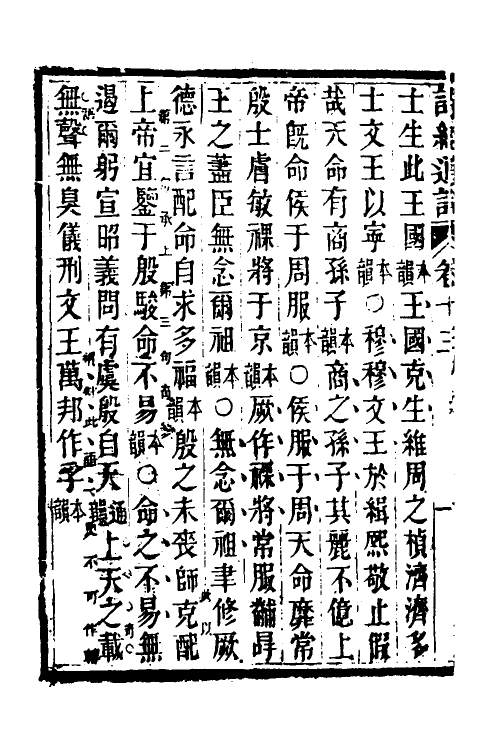 詩經通論 卷十三
士生此王國本韻王國克生維周之楨濟濟多
士文王以寧本韻○穆穆文王於緝熙敬止假
哉天命有商孫子本韻商之孫子其麗不億上
帝既命侯于周服本韻○侯服于周天命靡常
殷士膚敏祼將于京本韻厥作祼將常服黼冔
王之藎臣無念爾祖本韻○無念爾祖聿修厥
德永言配命自求多福本韻殷之未喪師克配
上帝宜鑒于殷駿命不易本韻○命之不易無
遏爾躬宣昭義問有虞殷自天通韻上天之載
無聲無臭儀刑文王萬邦作孚本韻